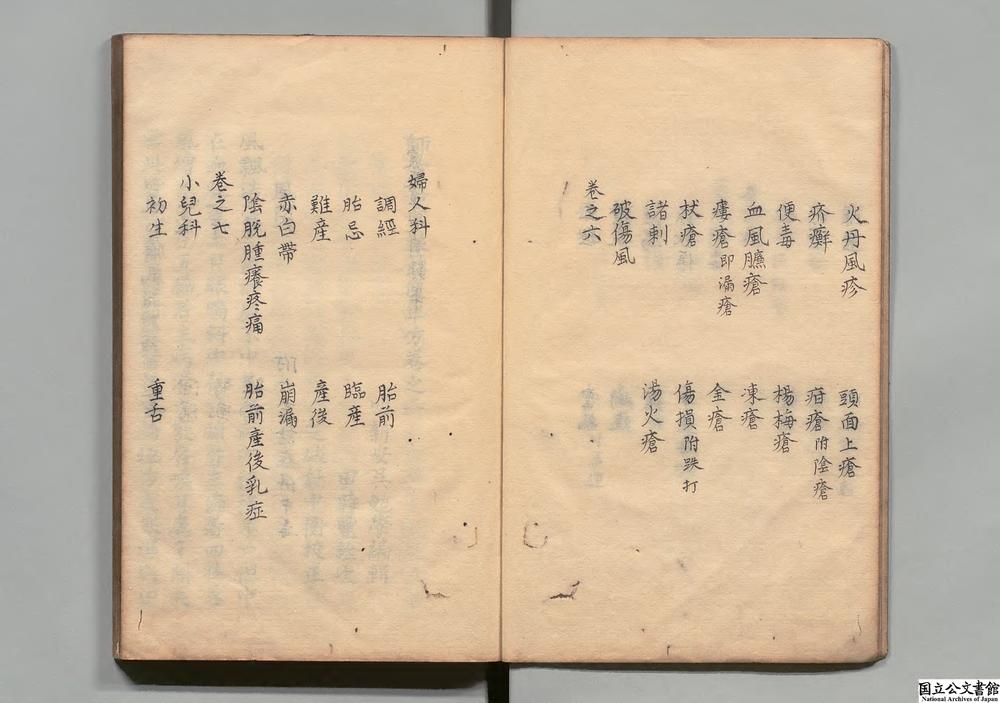 火丹風疹　頭面上瘡
疥癬　疳瘡附陰瘡
便毒　楊梅瘡
血風臁瘡　凍瘡
瘻瘡即漏瘡　金瘡
杖瘡　傷損附跌打
諸刺　湯火瘡
破傷風
卷之六
婦人科
調經　胎前
胎忌　臨産
難産　産後
赤白帶　崩漏
陰脱腫癢疼痛　胎前産後乳症
卷之七
小兒科
初生　重舌
国立公文書館
National Archives of Japan